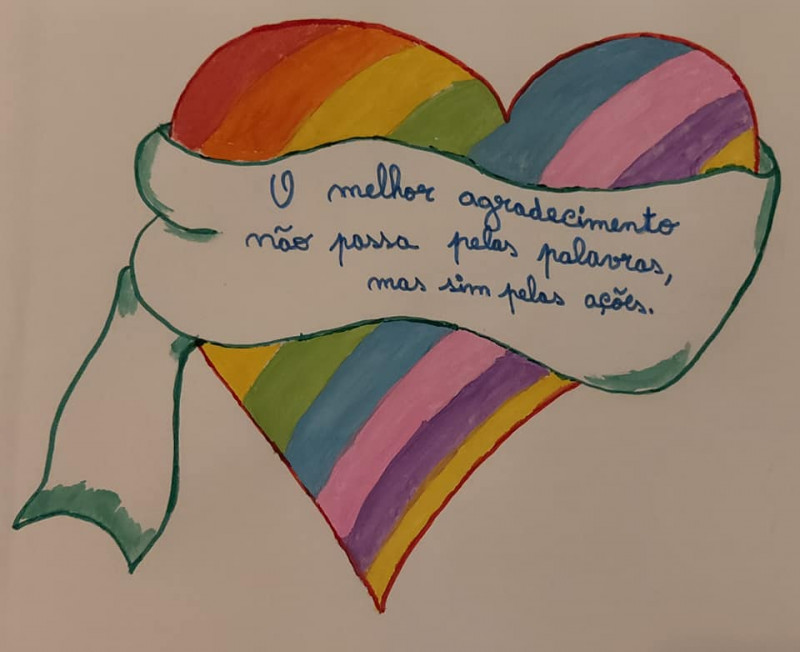 O melhor agradecimento
não passa pelas palavras,
mas sim pelas ações.